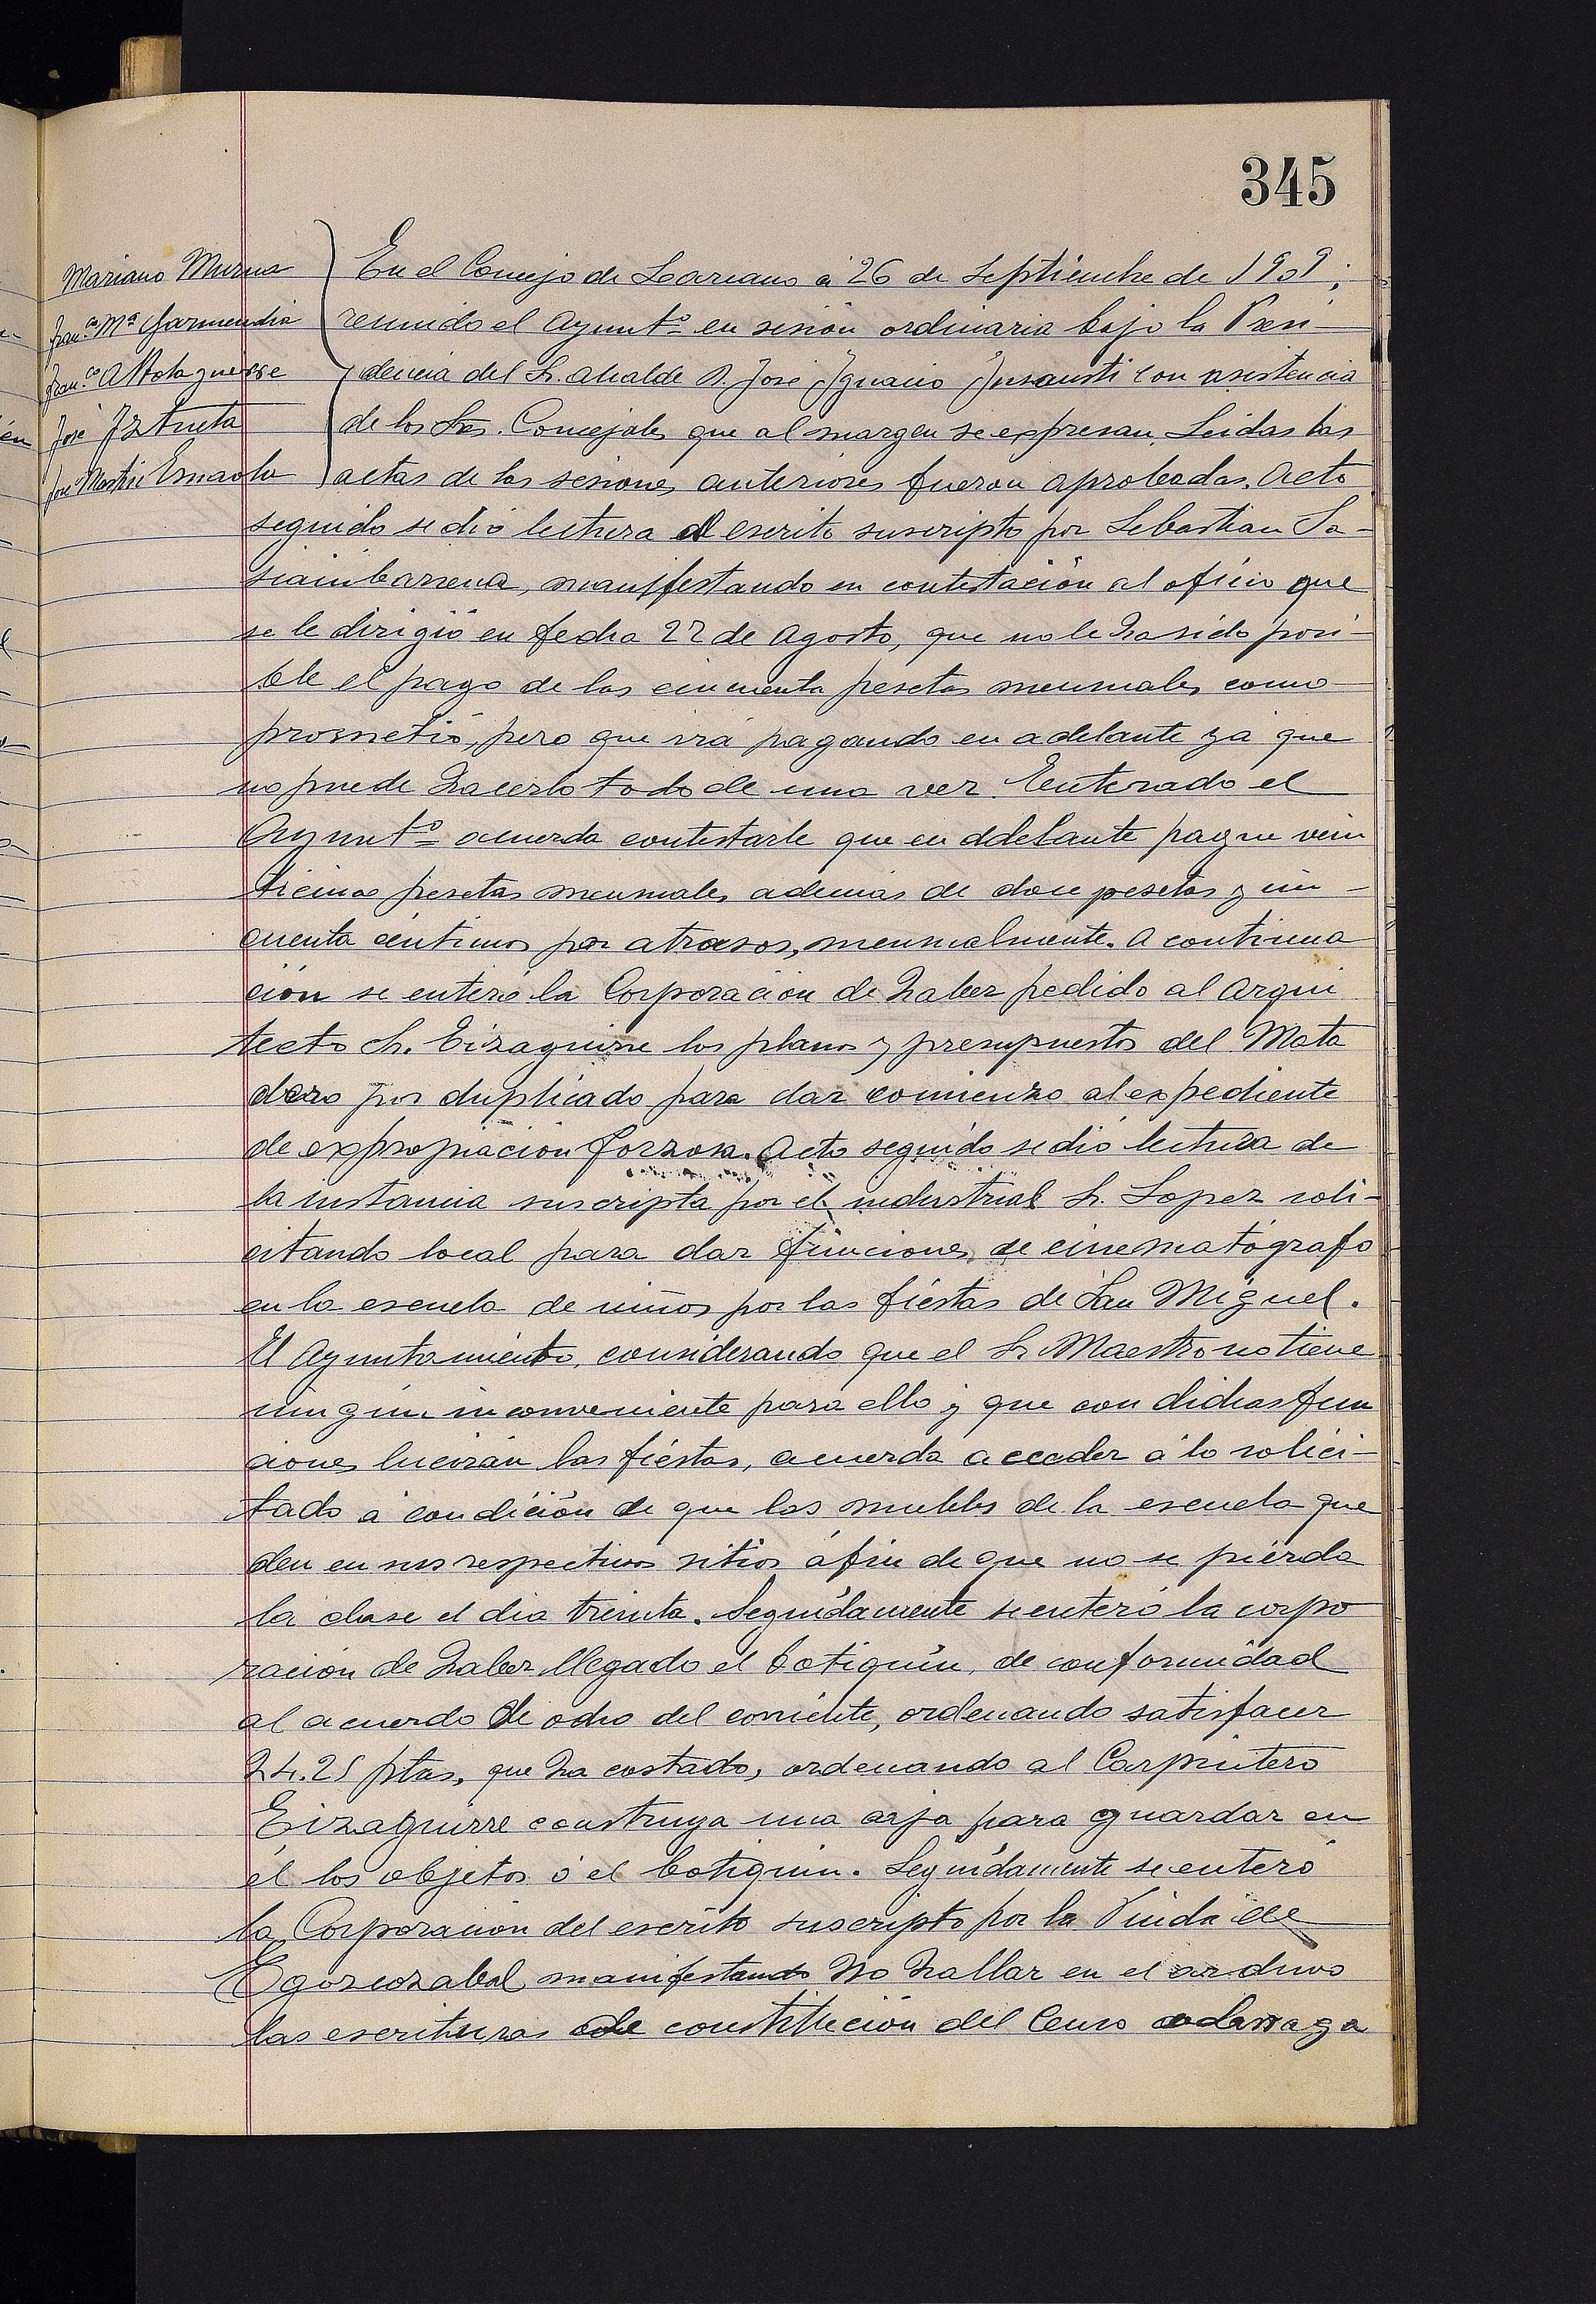 345
Mariano Murua
Fran.co Mª Garmendia
Fran.co Altolaguirre
José Iztueta
José Martin Esnaola
En el Concejo de Lazcano á 26 de Septiembre de 1909;
reunido el Ayuntº en sesión ordinaria bajo la Presi-
dencia del Sr. Alcalde D. José Ignacio Insausti con asistencia
de los Sres. Concejales que al margen se expresan. Leidas las
actas de las sesiones anteriores fueron aprobadas. Acto
seguido se dió lectura al escrito suscripto por Sebastian Sa-
siambarrena, manifestando en contestación al oficio que
se le dirigió en fecha 27 de Agosto, que no le ha sido posi-
ble el pago de las cincuenta pesetas mensuales como
prometió, pero que irá pagando en adelante ya que
no puede hacerlo todo de una vez. Enterado el
Ayuntº acuerda contestarle que en adelante pague vein
ticinco pesetas mensuales además de doce pesetas y cin-
cuenta céntimos por atrasos, mensualmente. A continua
ción se enteró la Corporación de haber pedido al Arqui
tecto Sr. Eizaguirre los planos y presupuestos del Mata
dero por duplicado para dar comienzo al expediente
de expropiación forzosa. Acto seguido se dió lectura de
la instancia suscripta por el industrial Sr. Lopez soli-
citando local para dar funciones de cinematógrafo
en la escuela de niños por las fiestas de San Miguel.
El Ayuntamiento, considerando que el Sr Maestro no tiene
ningún inconveniente para ello y que con dichas fun
ciones lucirán las fiestas, acuerda acceder á lo solici-
tado á condición de que los muebles de la escuela que
den en sus respectivos sitios á fin de que no se pierda
la clase el dia treinta. Seguidamente se enteró la corpo
ración de haber llegado el botiquín, de conformidad
al acuerdo de ocho del corriente, ordenando satisfacer
24.25 ptas, que ha costado, ordenando al Carpintero
Eizaguirre construya una caja para guardar en
él los objetos ó el botiquin. Seguidamente se enteró
la Corporación del escrito suscripto por la Viuda de
Egorcozabal manifestando no hallar en el archivo
las escrituras de constitución del Censo